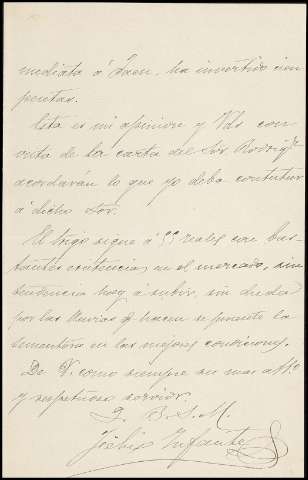 mediata á Jaen, ha invertido cien
pesetas.
Esta es mi opinion y Vds con
vista de la carta del Sor. Rodrigz
acordarán lo que yo deba contestar
á dicho Sor.
El trigo sigue á 55 reales con bas-
tantes existencias en el mercado, sin
tendencia hoy á subir, sin duda
por las lluvias q hacen se presente la
sementera en las mejores condiciones.
De V. como siempre su mas atto
y respetuoso servidor
Q. B. S. M.
Infante